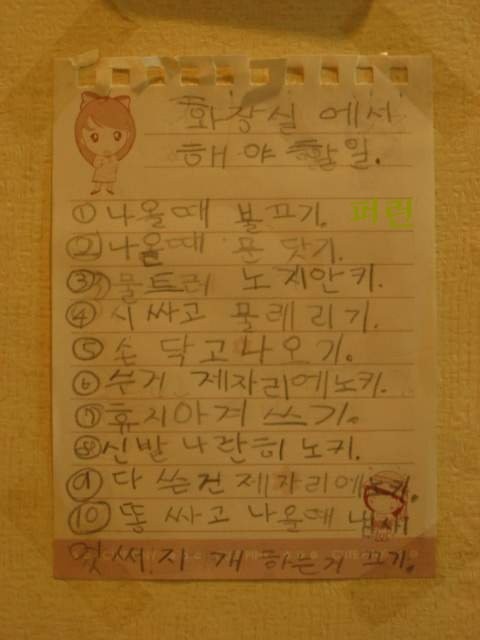 화장실 에서
해야 할일.
① 나올때 불끄기. 퍼런
② 나올때 문 닷기.
③ 물트러 노지안키.
④ 시싸고 물레리기.
⑤ 손 닥고나오기.
⑥ 수거 제자리에노키.
⑦ 휴지아겨 쓰기.
⑧ 신발 나란히 노키.
⑨ 다 쓴건 제자리에노키.
⑩ 똥 싸고 나올때 냄새
자 개 하는거 끄기.